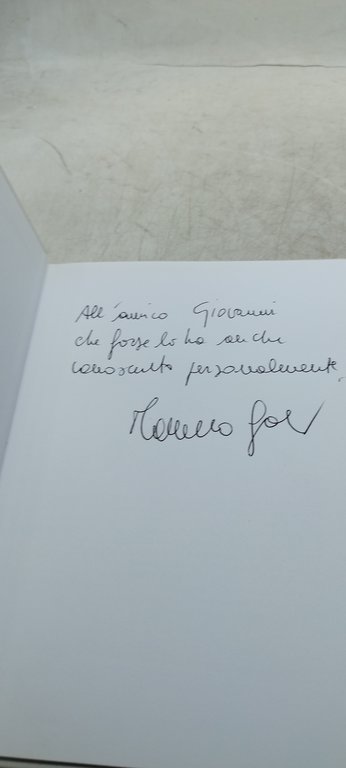 All'amico Giovanni
che forse lo ha anche
conosciuto personalmente.
Moreno